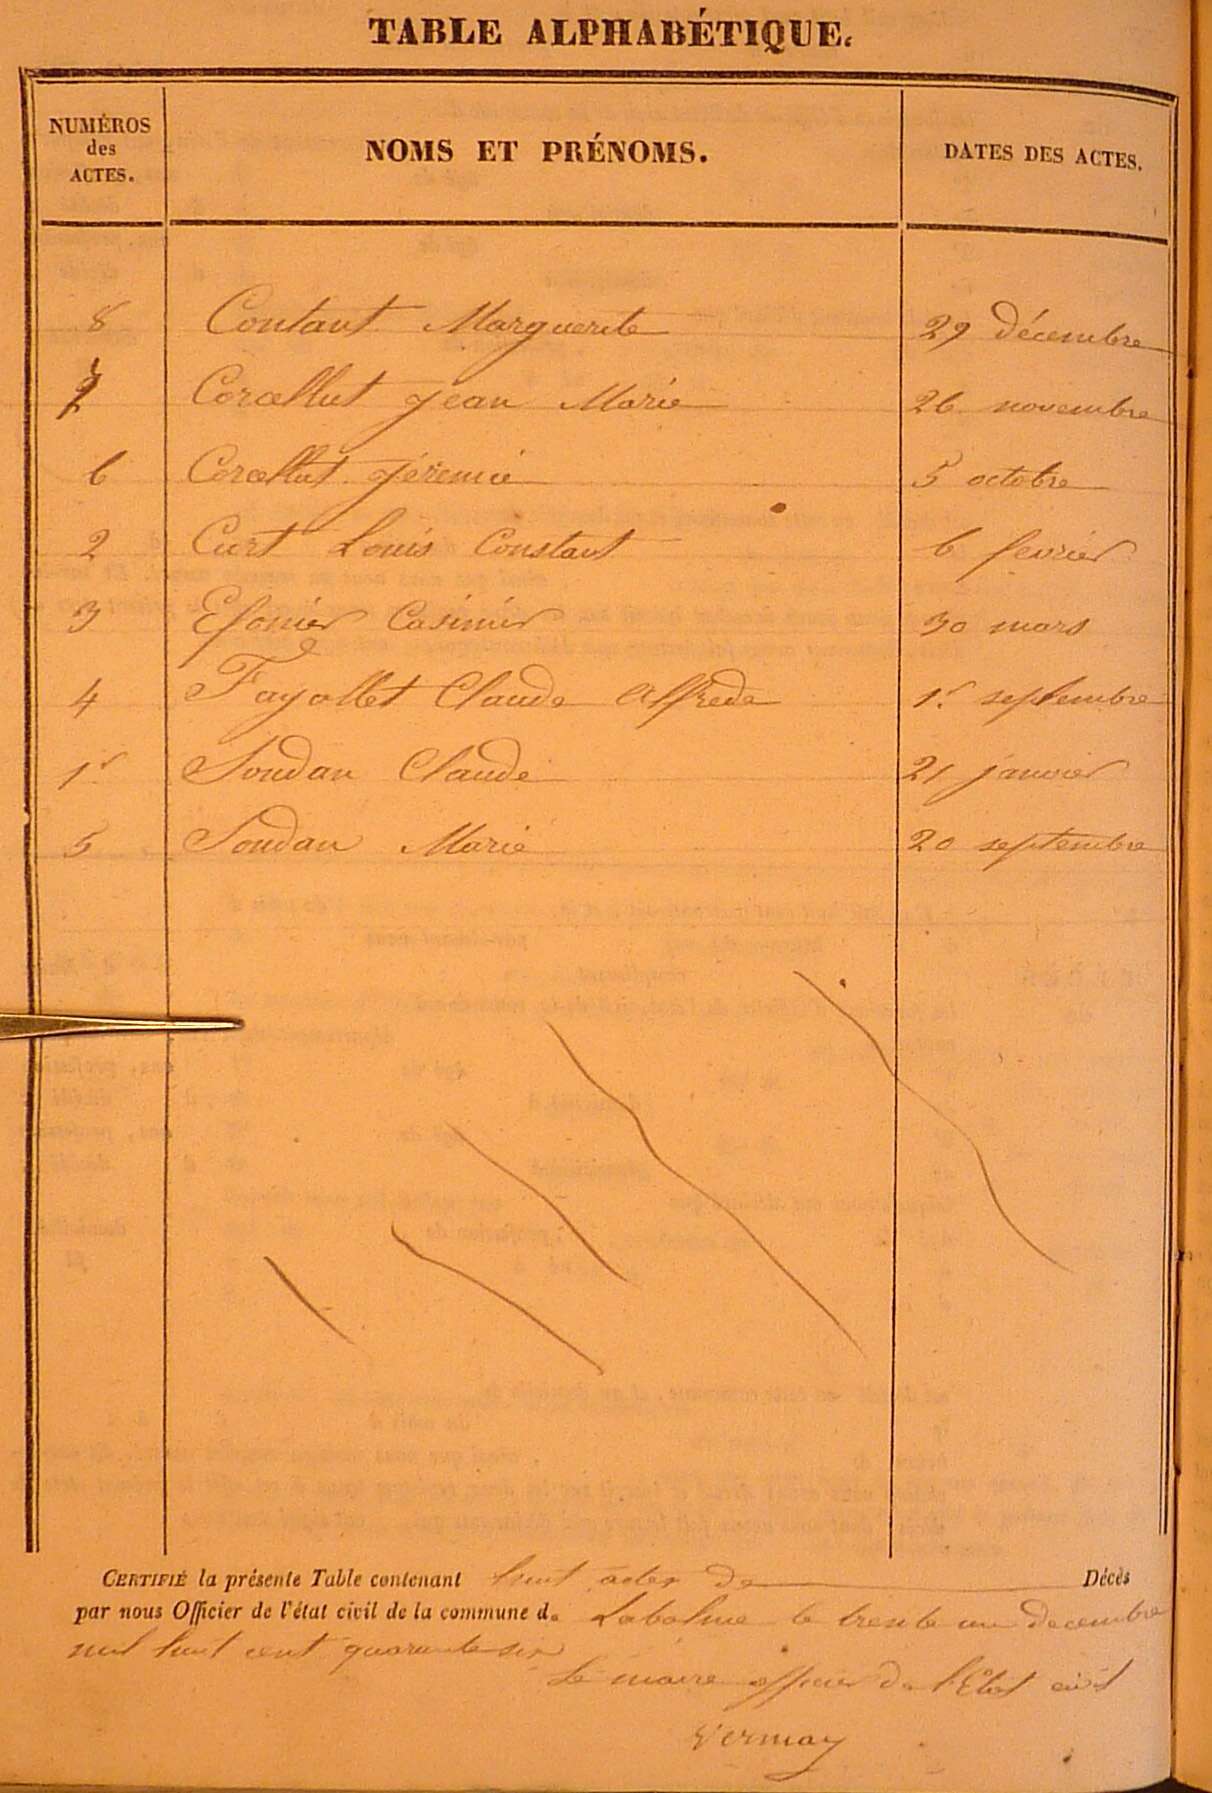 TABLE ALPHABÉTIQUE.
NUMÉROS
des
ACTES.
NOMS ET PRÉNOMS.
DATES DES ACTES.
8 Contant Marguerite 29 décembre
7 Corcellut Jean Marie 26 novembre
6 Corcellut Jéremie 5 octobre
2 Curt Louis Constant 6 fevrier
3 Casimir 30 mars
4 Fayollet Claude Alfrede 1r septembre
1r Soudan Claude 21 janvier
5 Soudan Marie 20 septembre
CERTIFIÉ la présente Table contenant huit actes de Décès
par nous Officier de l'état civil de la commune de Labalme le trente un decembre
mil huit cent quarante six
Le maire officier de l'Etat civil
Vermay